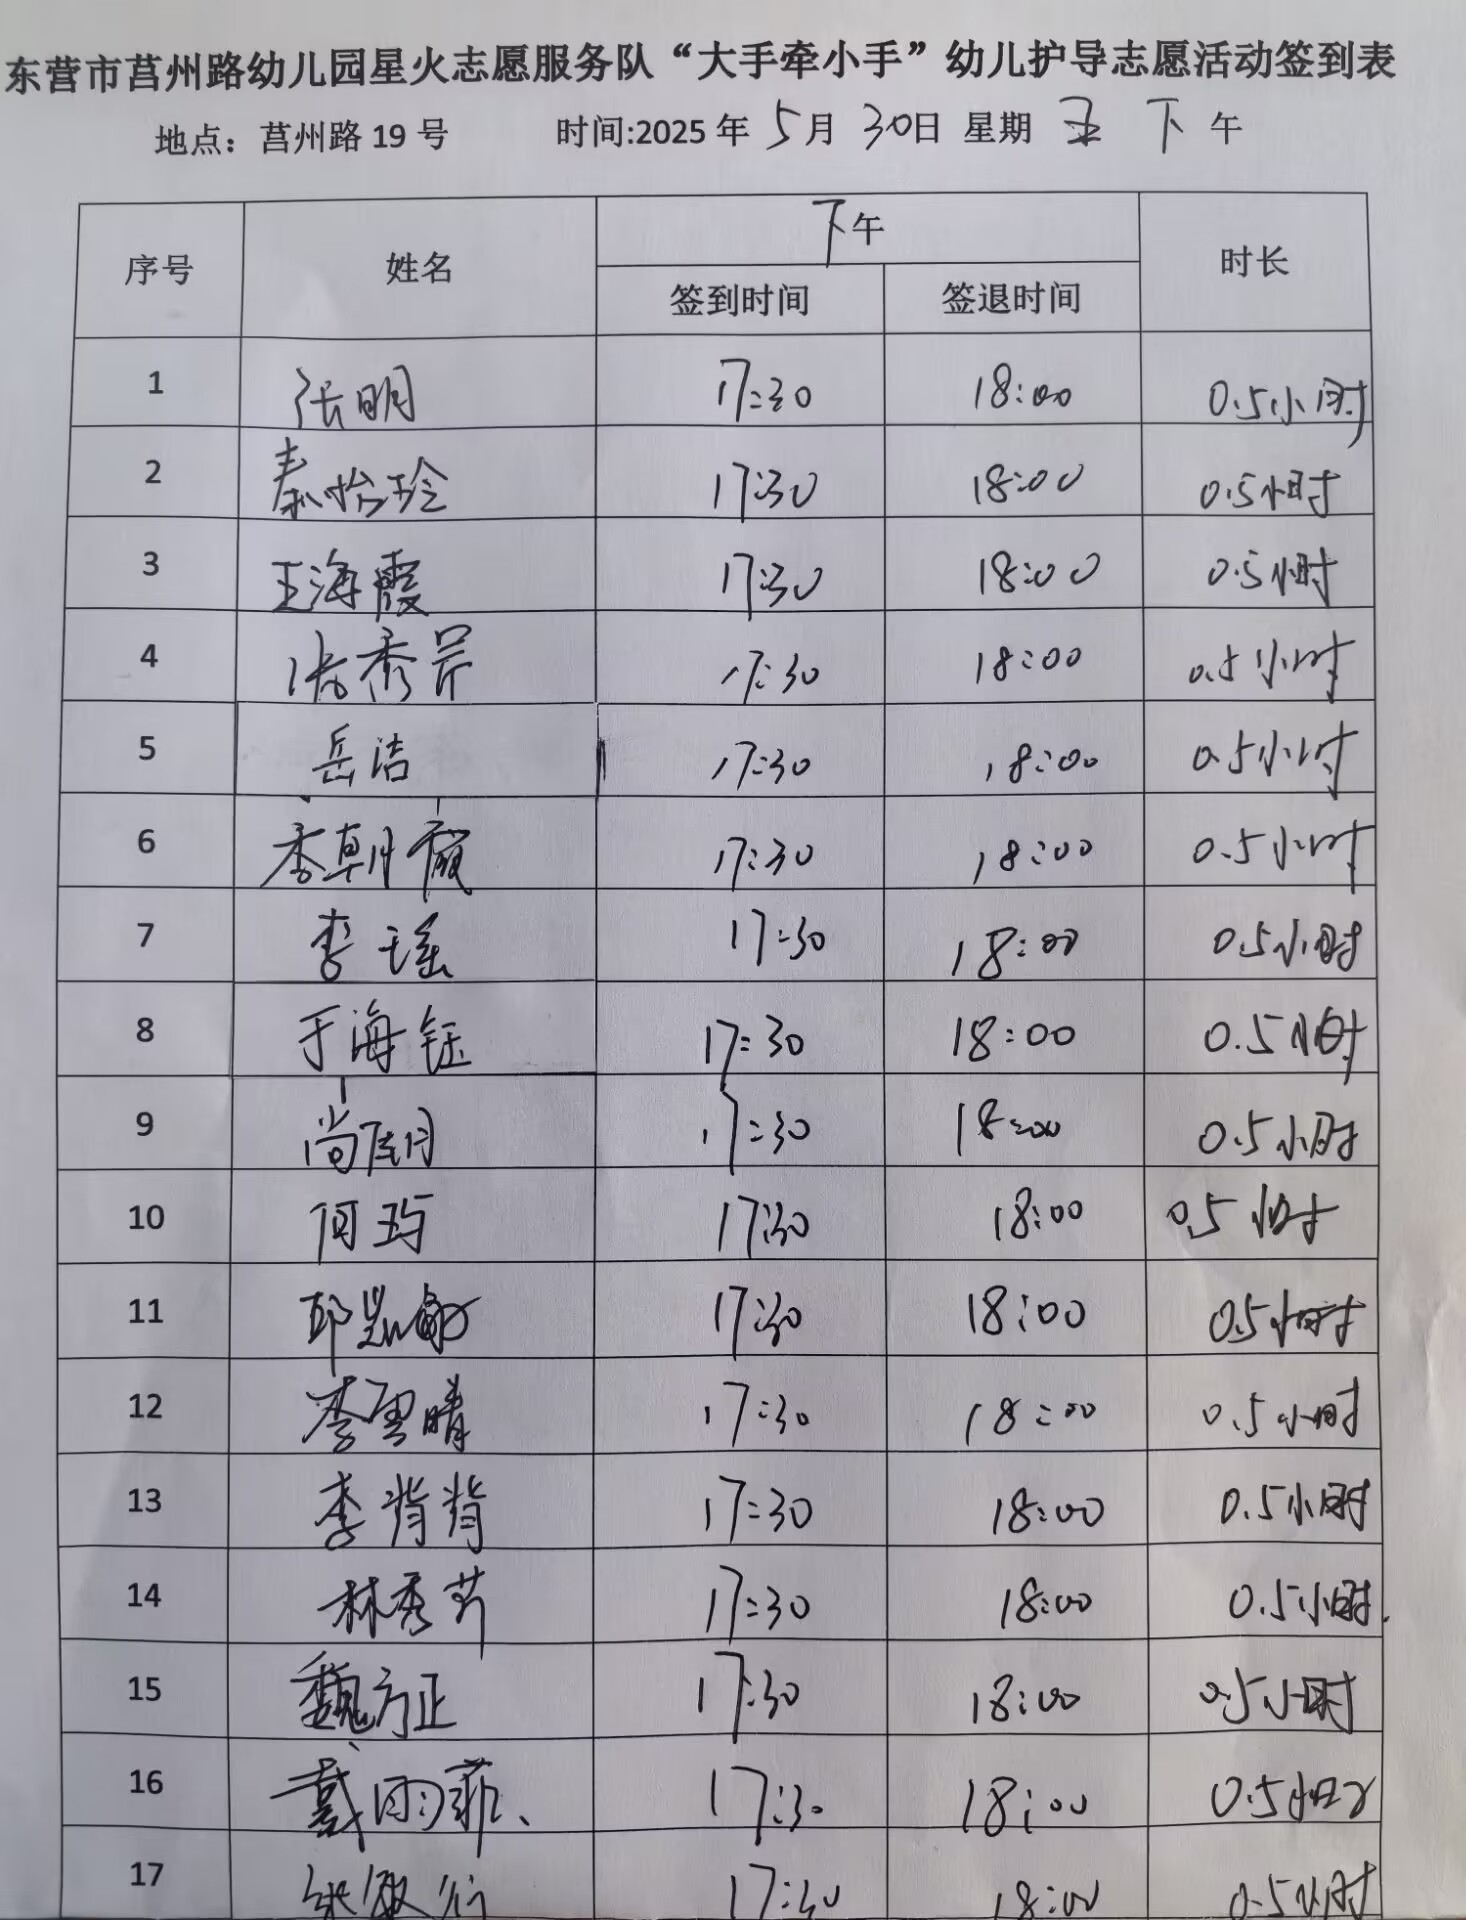 东营市莒州路幼儿园星火志愿服务队“大手牵小手”幼儿护导志愿活动签到表
地点：莒州路 19 号 时间:2025 年 5月 30日 星期 五 下 午
序号 姓名 下午 时长
签到时间 签退时间
1 张明 17:30 18:00 0.5小时
2 秦怡玲 17:30 18:00 0.5小时
3 王海霞 17:30 18:00 0.5小时
4 张秀芹 17:30 18:00 0.5小时
5 岳洁 17:30 18:00 0.5小时
6 李朝霞 17:30 18:00 0.5小时
7 李瑶 17:30 18:00 0.5小时
8 于海钰 17:30 18:00 0.5小时
9 尚 17:30 18:00 0.5小时
10 何玙 17:30 18:00 0.5小时
11 邱 敏 17:30 18:00 0.5小时
12 李雪晴 17:30 18:00 0.5小时
13 李背背 17:30 18:00 0.5小时
14 林秀芹 17:30 18:00 0.5小时.
15 魏方正 17:30 18:00 0.5小时
16 戴雨菲、 17:30 18:00 0.5小时
17 17:30 18:00 0.5小时